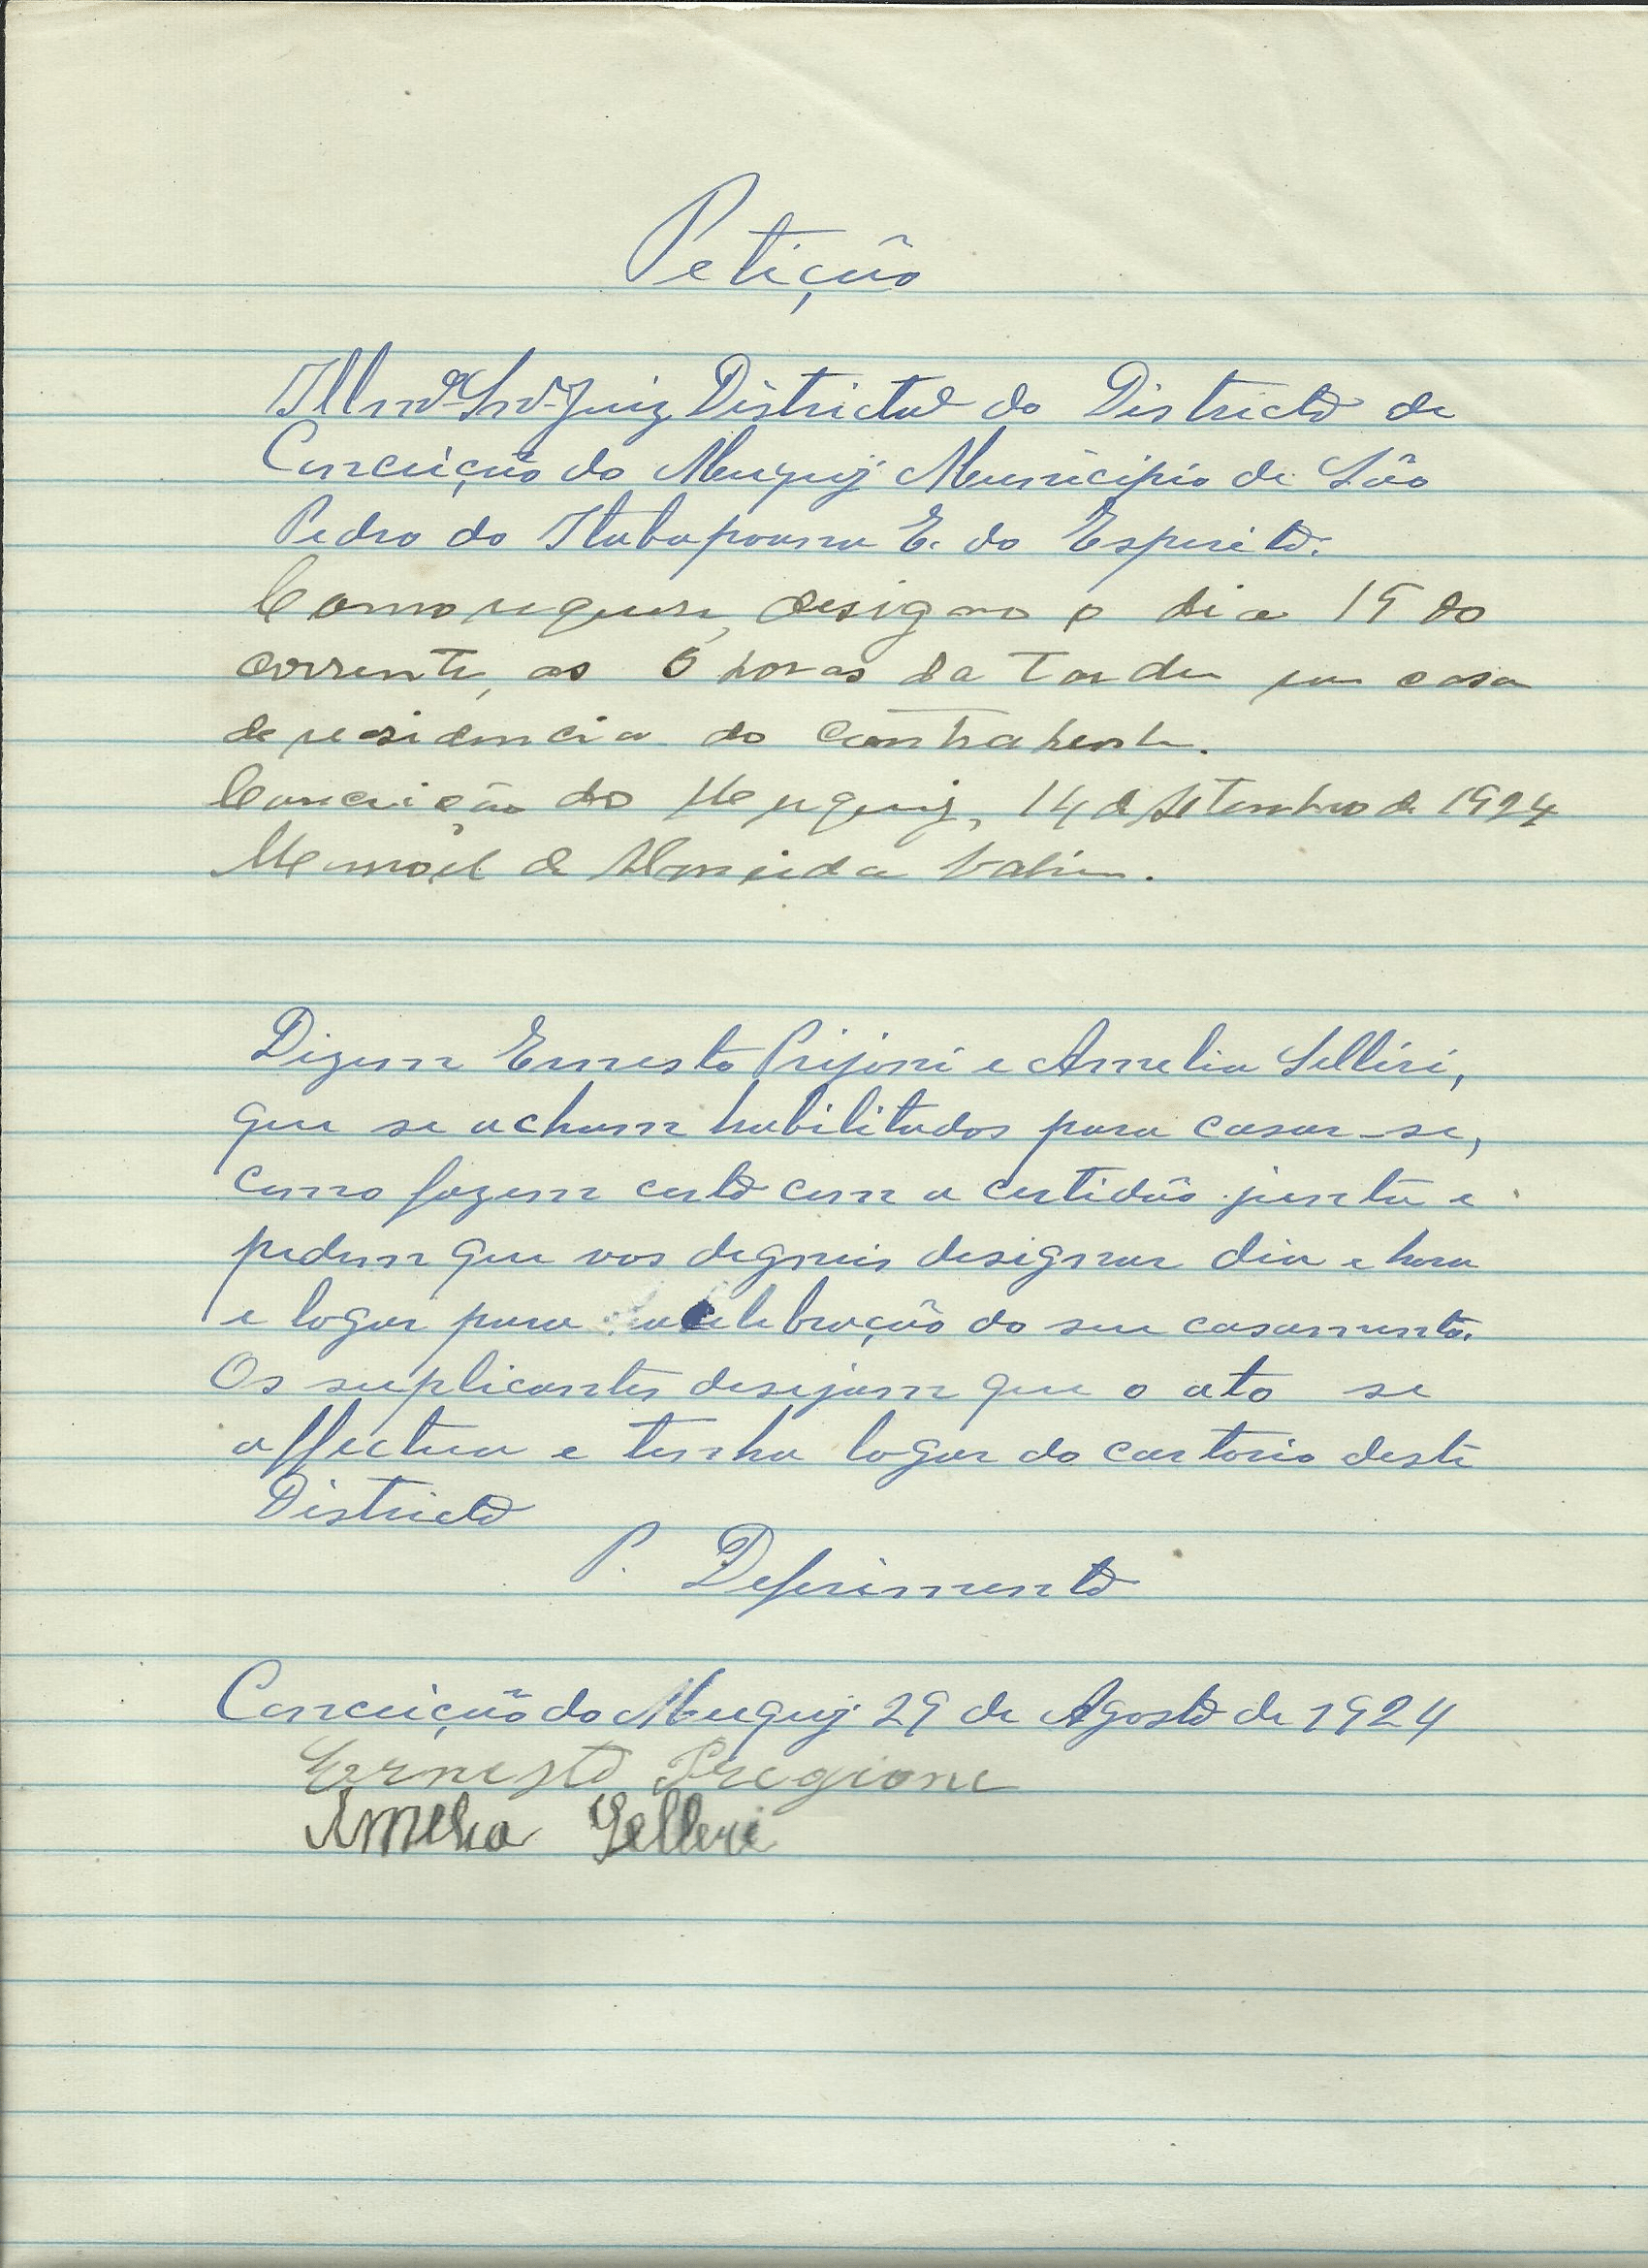 Petição
Illmº Snrº Juiz Districtal do Districto de
Conceição do Muquy Municipio de São
Pedro do Itabapoana E. do Esperito.
Como requer, designo o dia 19 do
corrente, as 6 horas da tarde em casa
de residencia do contrahente.
Conceição do Muquy, 14 de Setembro de 1924
Manoel de Almeida
Dizem Ernesto Prijoni e Amelia Selleri,
que se acham habilitados para casar-se,
como fazem certo com a certidão junta e
pedem que vos digneis designar dia e hora
e logar para a celebração do seu casamento.
Os suplicantes desejam que o ato se
affectua e tenha logar do cartorio deste
Districto
P. Deferimento
Conceição do Muquy 29 de Agosto de 1924
Ernesto Pregione
Amelia Selleri